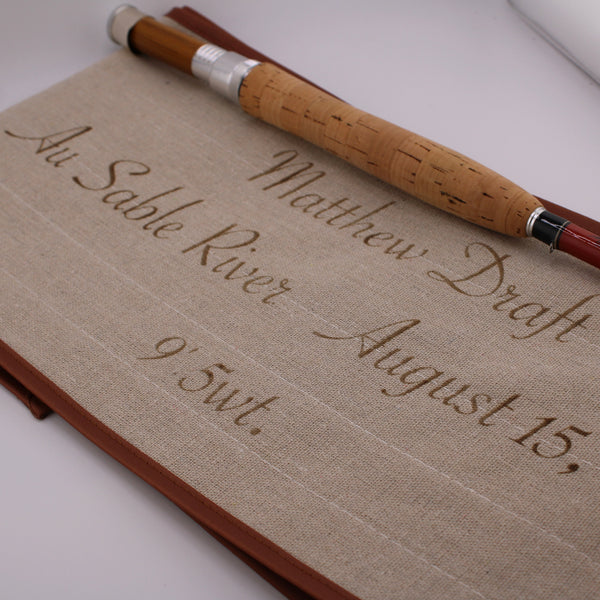 Matthew Draft
Au Sable River August 15,
9'.5wt.